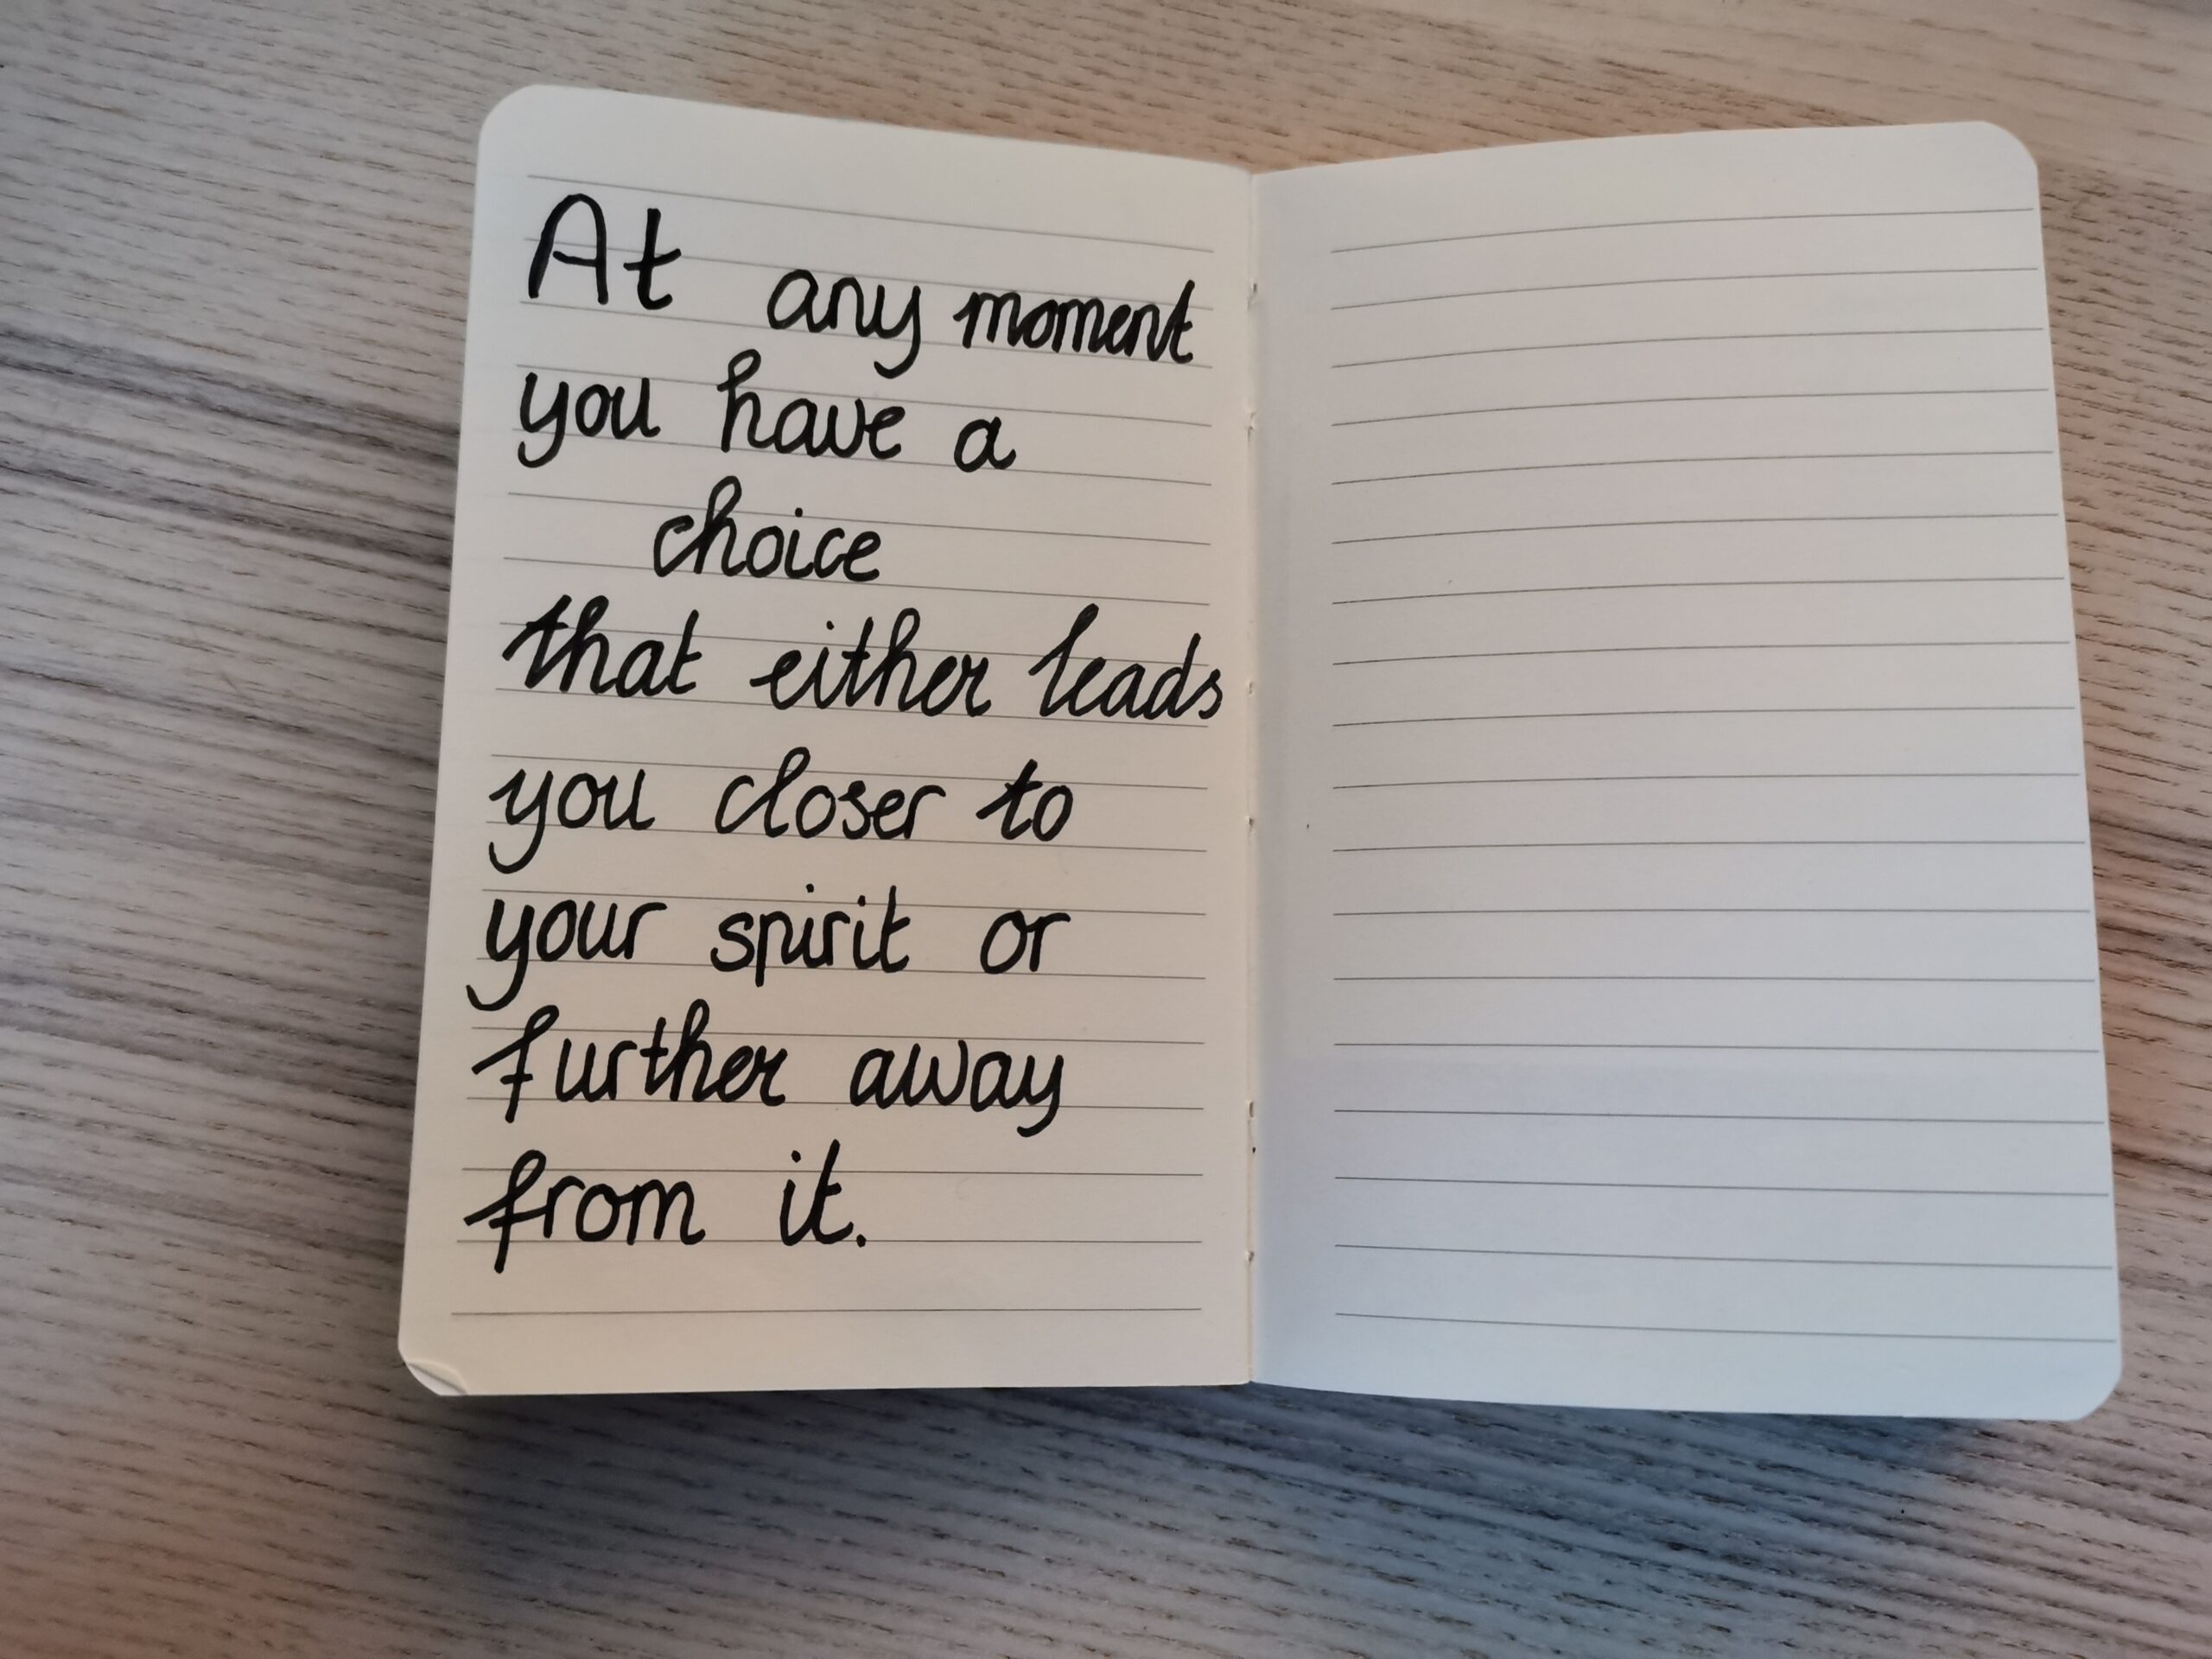 At any moment
you have a
choice
that either leads
you closer to
your spirit or
further away
from it.